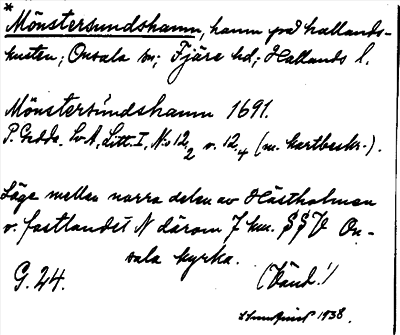 *
Mönstersundshamn, hamn på hallands-
kusten; Onsala sn; Fjäre hd; Hallands l.
Mönstersundshamn 1691.
P. Gedda. Sv A, Litt. I, No 12,2 o. 12,4 (m. kartbeskr.).
Läge mellan norra delen av Hästholmen
o. fastlandet N därom, 7 km. SSV On-
sala kyrka.
G. 24. (Vänd!)
1938.